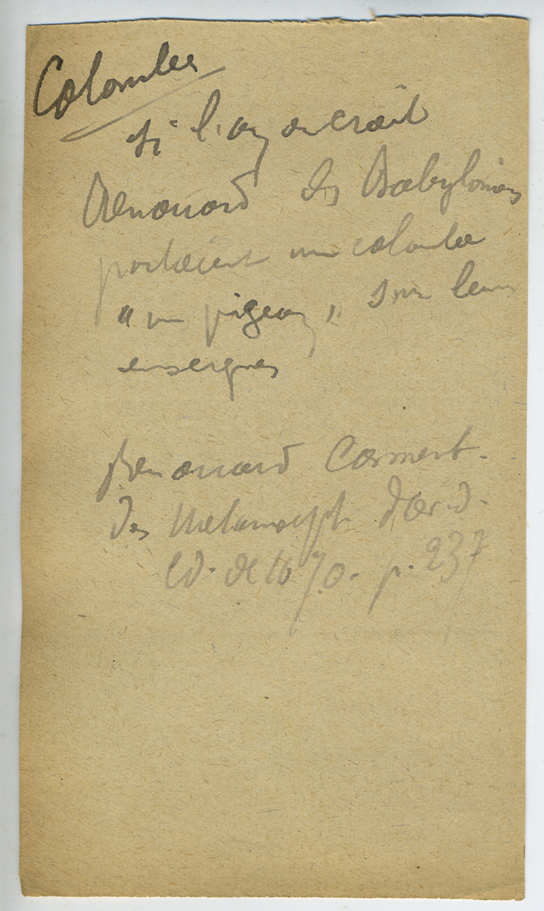 Colombe
si l'on en croit
Renouard les Babyloniens
portaient une colombe
"un pigeon" sur leurs
enseignes
Renouard Comment.
des Metamorph. d'Ovid.
ed. de p. 237